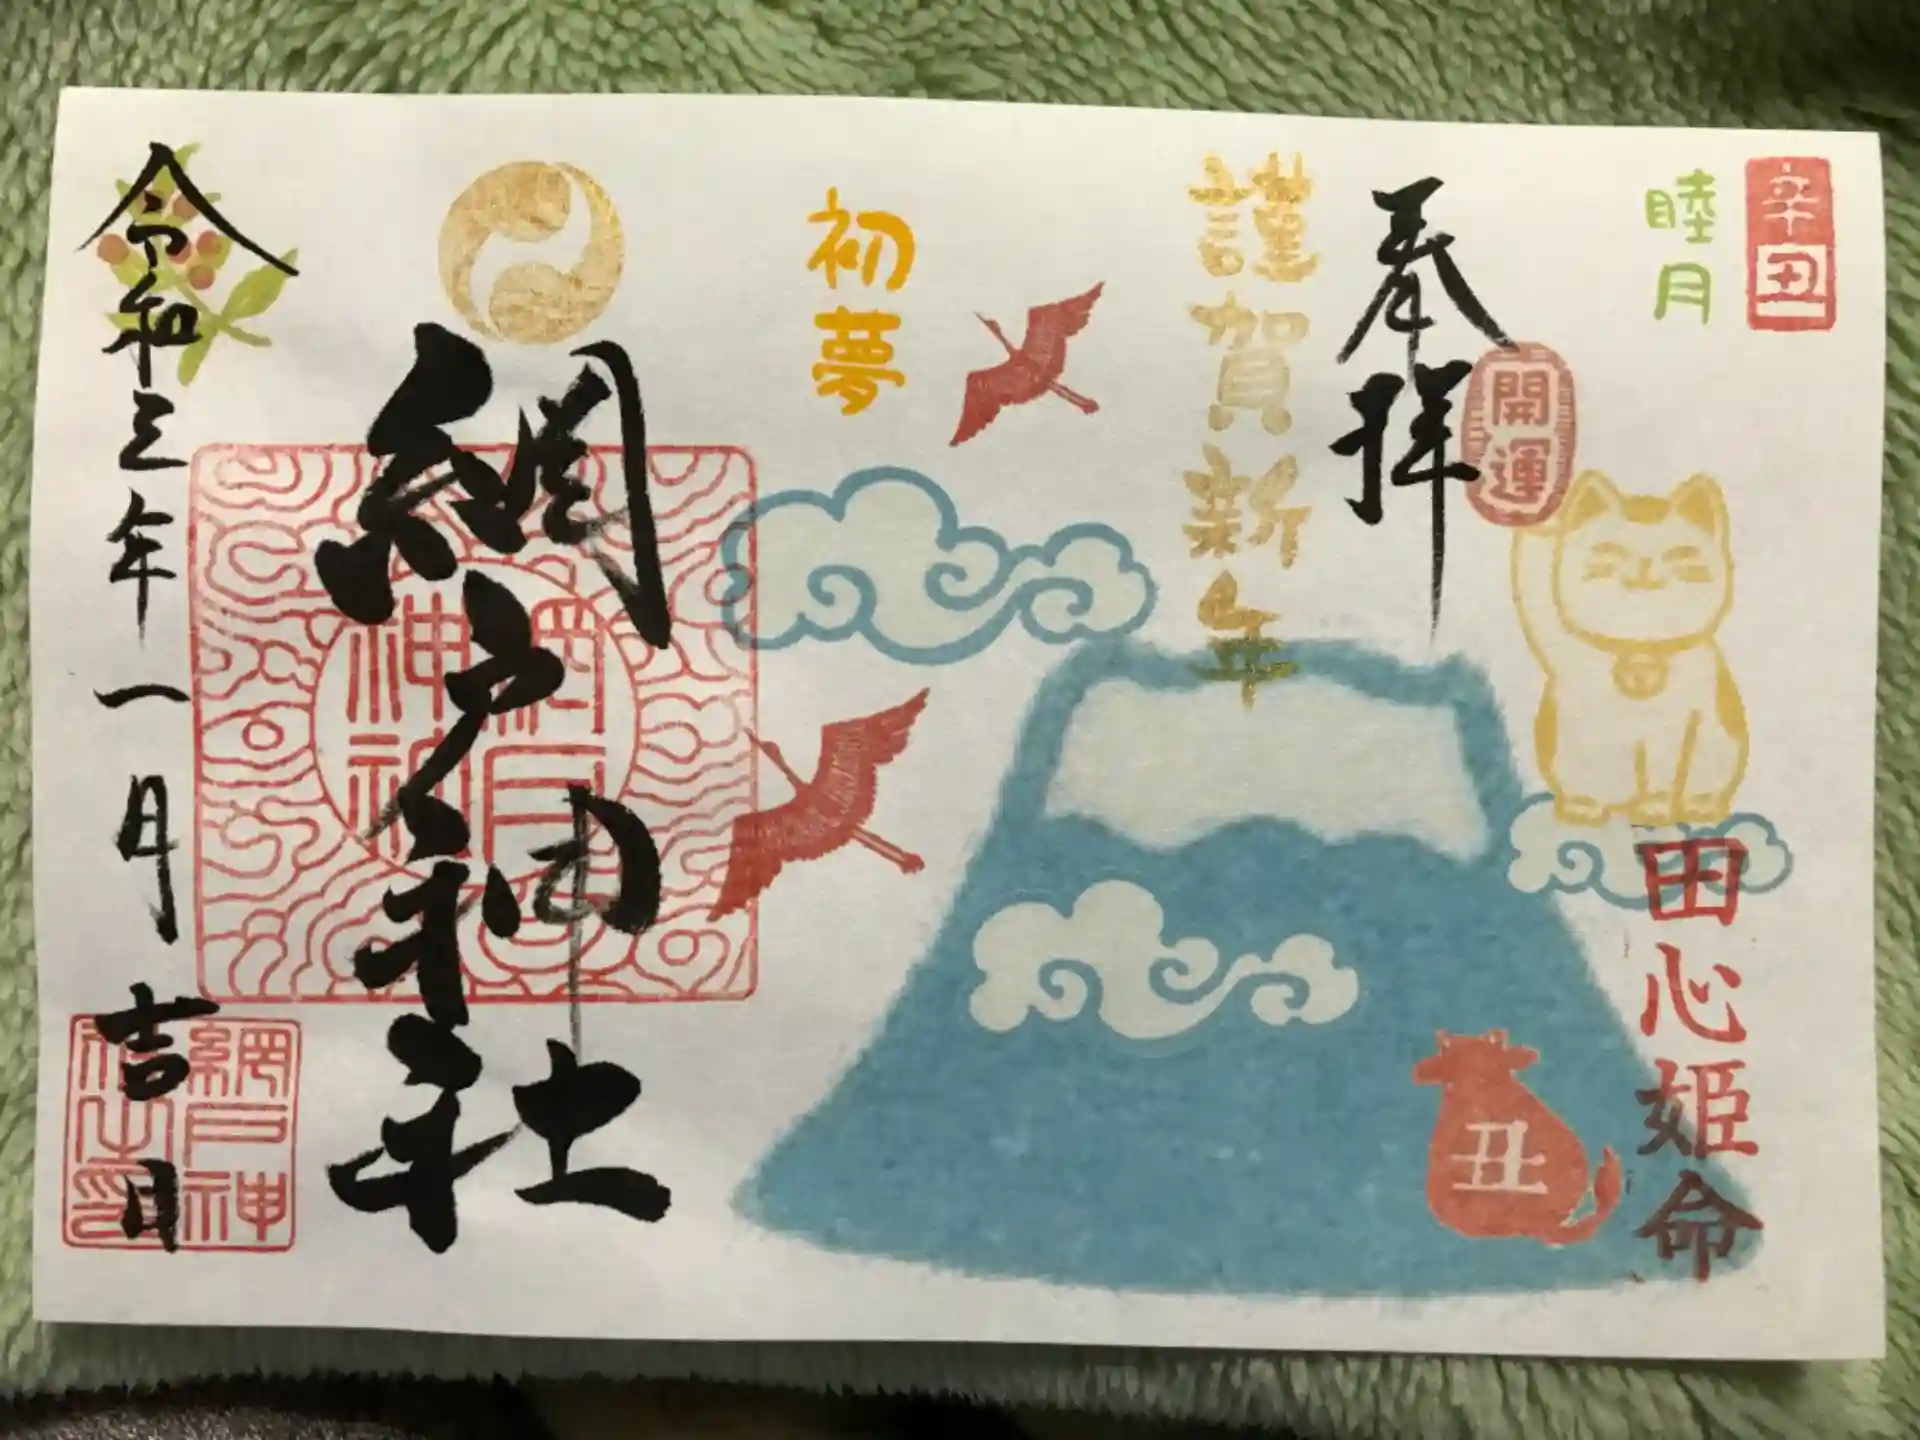 辛丑
睦月
奉拝
開運
田心姫命
丑
謹賀新年
初夢
網戸神社
網戸神社
令和三年一月吉日
網戸神
社之印